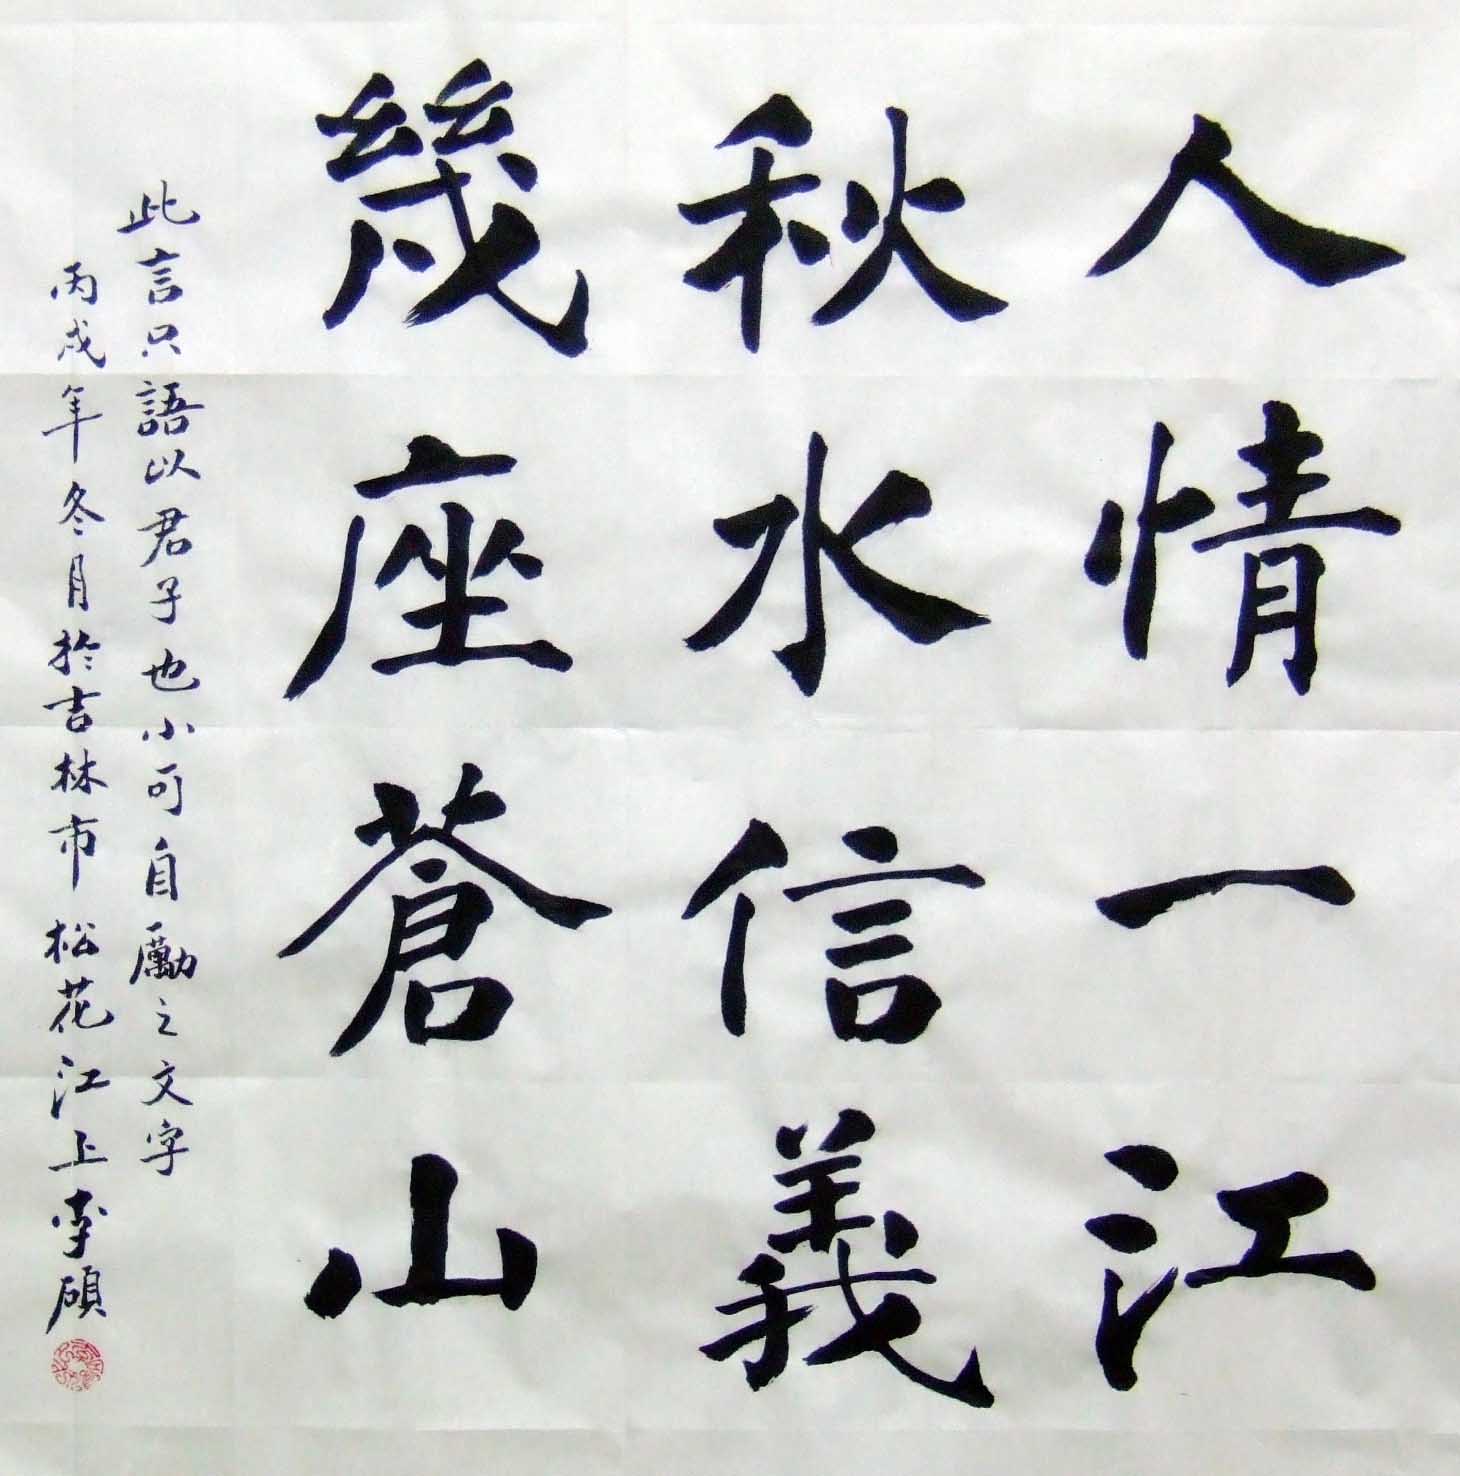 人情一江
秋水信義
幾座蒼山
此言只語以君子也小可自勵之文字
丙戌年冬月於吉林市松花江上李碩